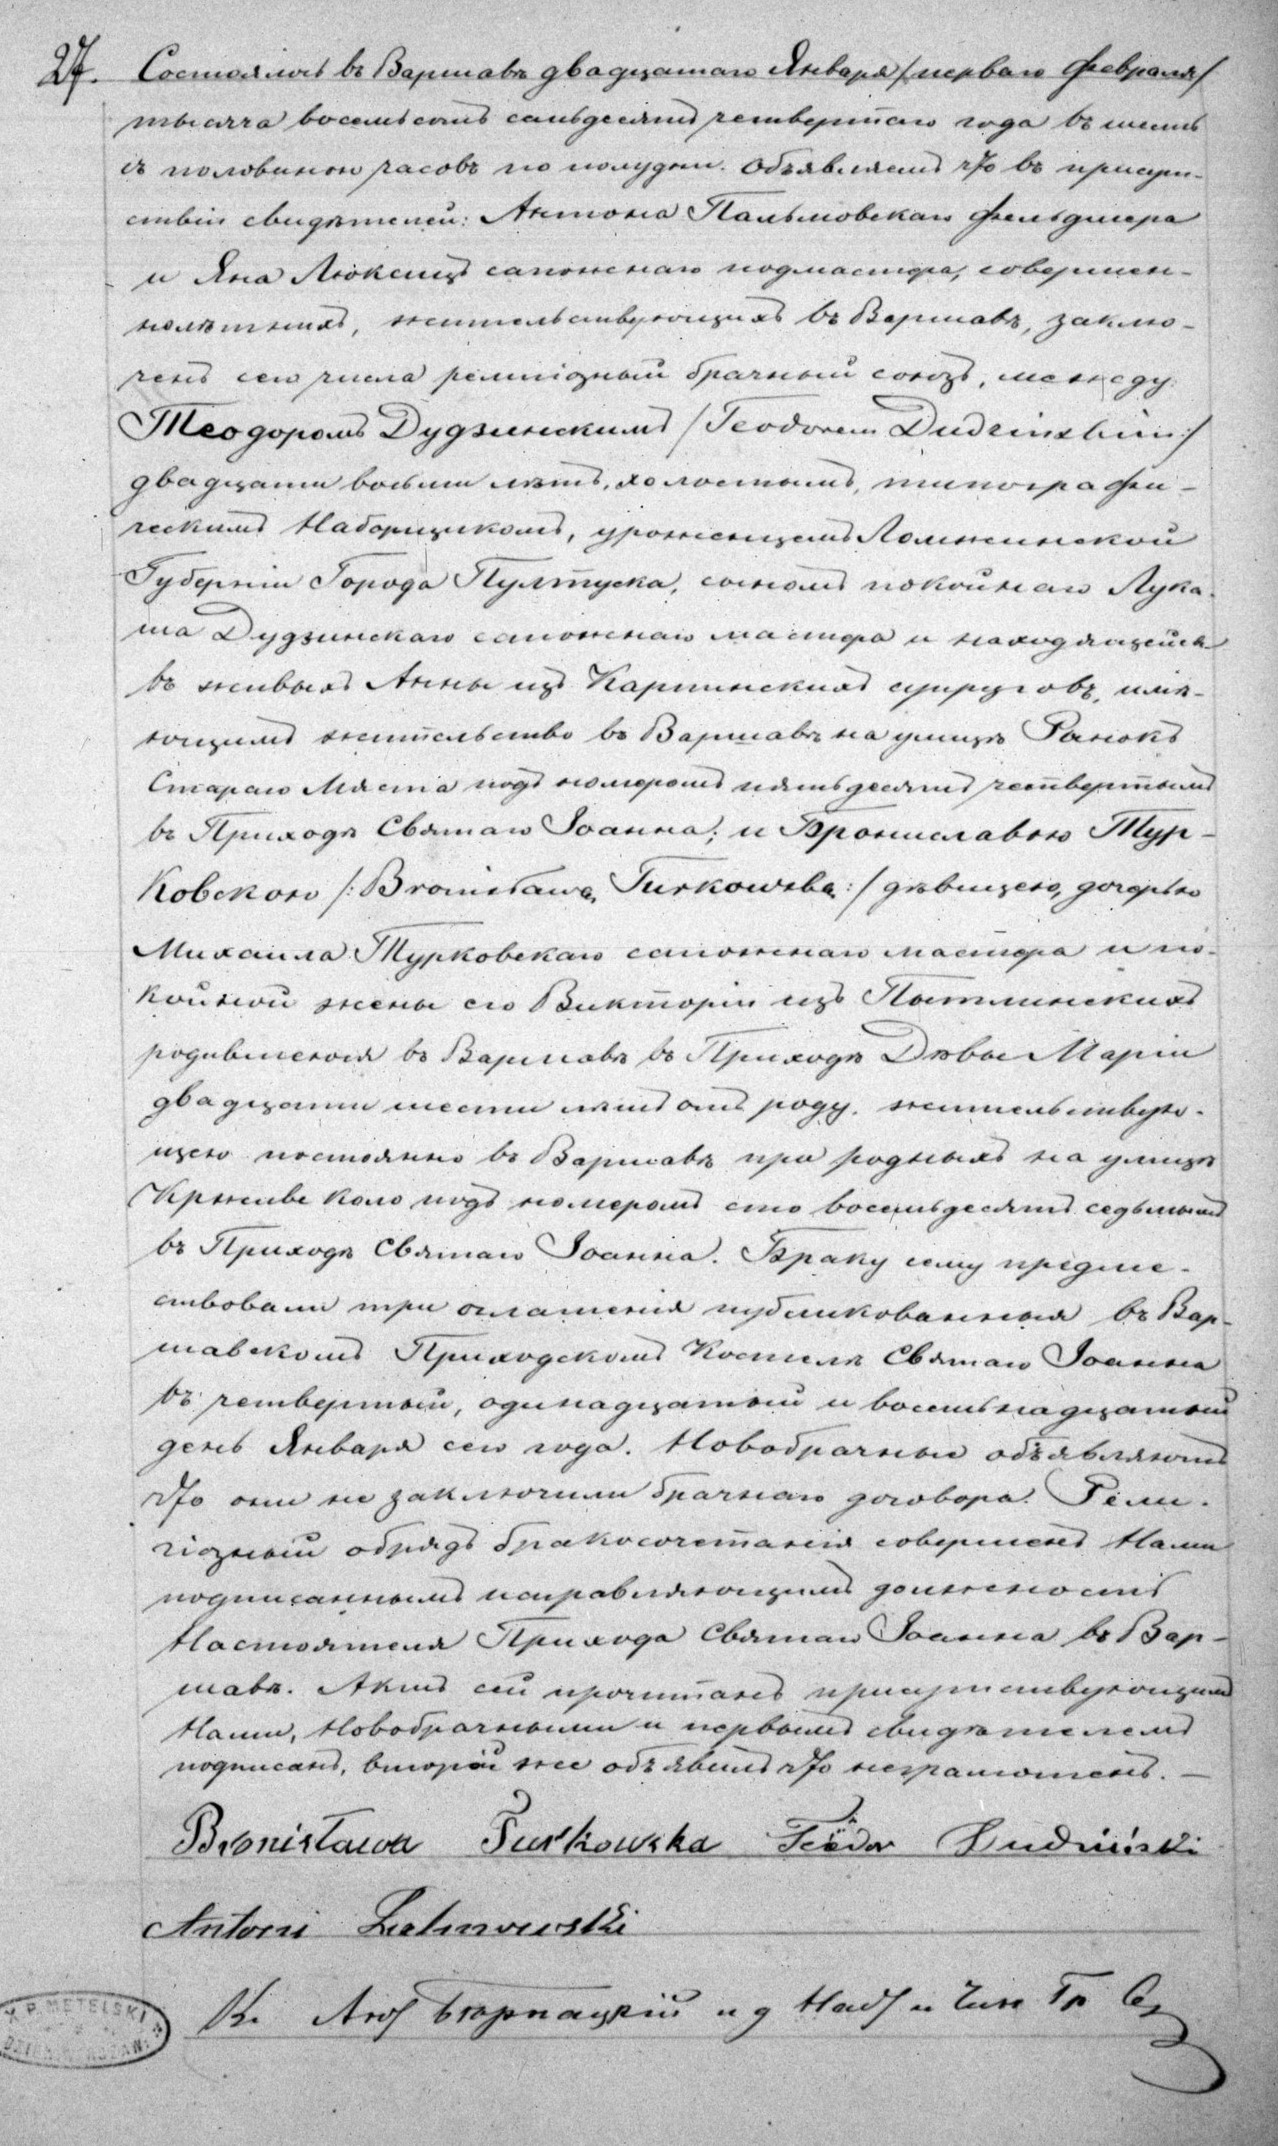 27. Состоялось въ Варшавѣ двадцатаго Января /перваго Февраля/
тысяча восемьсотъ семьдесятъ четвертаго года въ шесть
съ половиною часовъ по полудни. Объявляемъ что въ присут-
ствіи свидѣтелей: Антона Пальмовскаго Фельдшера
и Яна сапожнаго подмастера, совершен-
нолѣтнихъ, жительствующихъ въ Варшавѣ, заклю-
ченъ сего числа религіозный брачный союзъ, между
Теодоромъ Дудзинскимъ /Teodorem Dudzinskim:/
двадцати восьми лѣтъ, холостымъ, типографи-
ческимъ Наборщикомъ, уроженцемъ Ломжинской
Губерніи Города Пултуска, сыномъ покойнаго Лука-
ша Дудзинскаго сапожнаго мастера и находящейся
въ живыхъ Анны изъ Карпинскихъ супруговъ, имѣ-
ющимъ жительство въ Варшавѣ на улицѣ Рынокъ
Стараго Мяста подъ номеромъ пятьдесятъ четвертымъ
въ Приходѣ Святаго Іоанна; и Брониславою Тур-
ковскою /:Bronisława Turkowska:/ дѣвицею, дочерью
Михаила Турковскаго сапожнаго мастера и по-
койной жены его Викторіи изъ
родившеюся въ Варшавѣ въ Приходѣ Дѣвы Маріи
двадцати шести лѣтъ отъ роду, жительствую-
щею постоянно въ Варшавѣ при родныхъ на улицѣ
Крживе коло подъ номеромъ сто восемьдесятъ седьмымъ
въ Приходѣ Святаго Іоанна. Браку сему предше-
ствовали три оглашенія публикованныя въ Вар-
шавскомъ Приходскомъ Костелѣ Святаго Іоанна
въ четвертый, одинадцатый и восемьнадцатый
день Января сего года. Новобрачные объявляютъ
что они не заключили брачнаго договора. Рели-
гіозный обрядъ бракосочетанія совершенъ Нами
подписаннымъ исправляющимъ должность
Настоятеля Прихода Святаго Іоанна въ Вар-
шавѣ. Актъ сей прочитанъ присутствующимъ
Нами, Новобрачными и первымъ свидѣтелемъ
подписанъ, второй же объявилъ что неграмотенъ. —
Bronisława Turkowska Teodor Dudziński
Antoni
К. и д Наст и Чин Гр С
X P. METELSKI